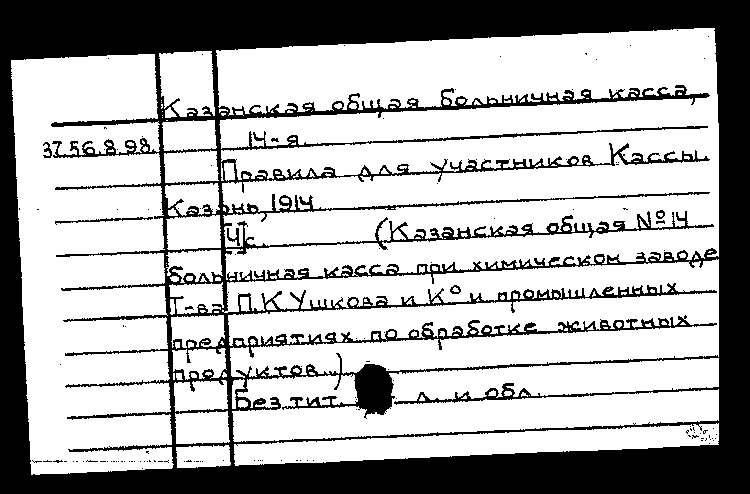 Казанская общая больничная касса,
37.56.8.98. 14-я.
Правила для участников Кассы.
Казань, 1914
[4]с. (Казанская общая №14
больничная касса при химическом заводе
Т-ва П.К Ушкова и К° и промышленных
предприятиях по обработке животных
продуктов.)
Без тит. л. и обл.